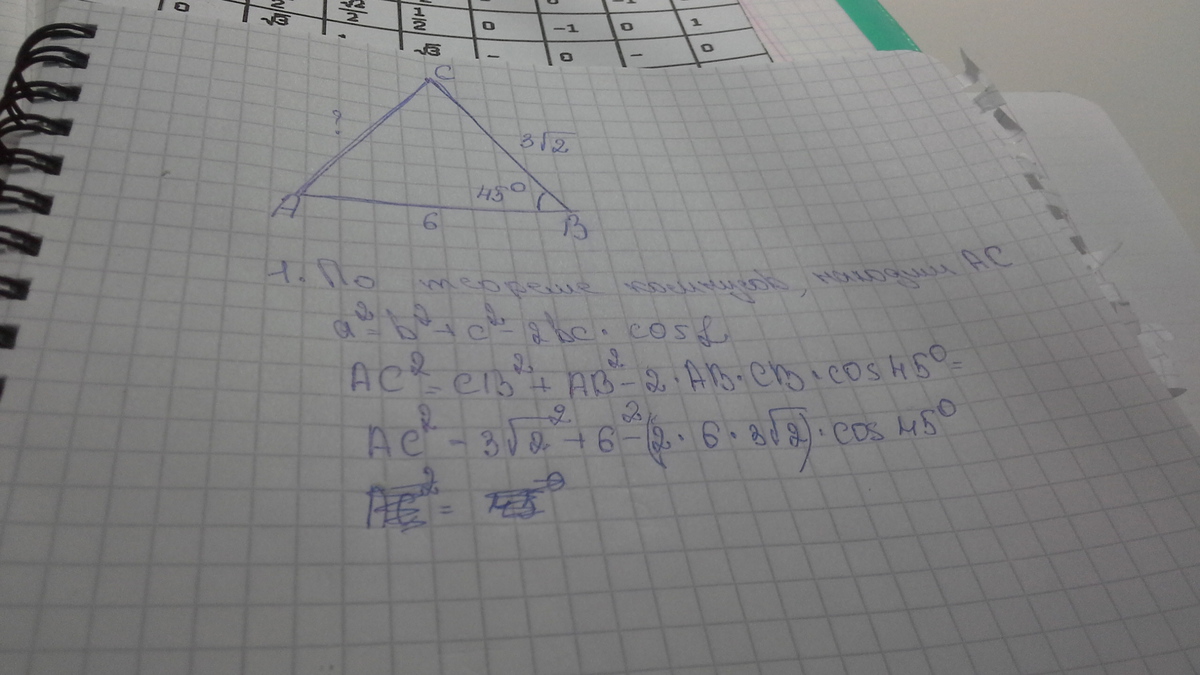 0 -1 0 1
- 0 - 0
C
?
3√2
45°
A
6
B
1. По теореме косинусов, находим AC
a² = b² + c² - 2bc · cos α
AC² = CB² + AB² - 2 · AB · CB · cos 45° =
AC² - 3√2² + 6² - (2 · 6 · 3√2) · cos 45°
=